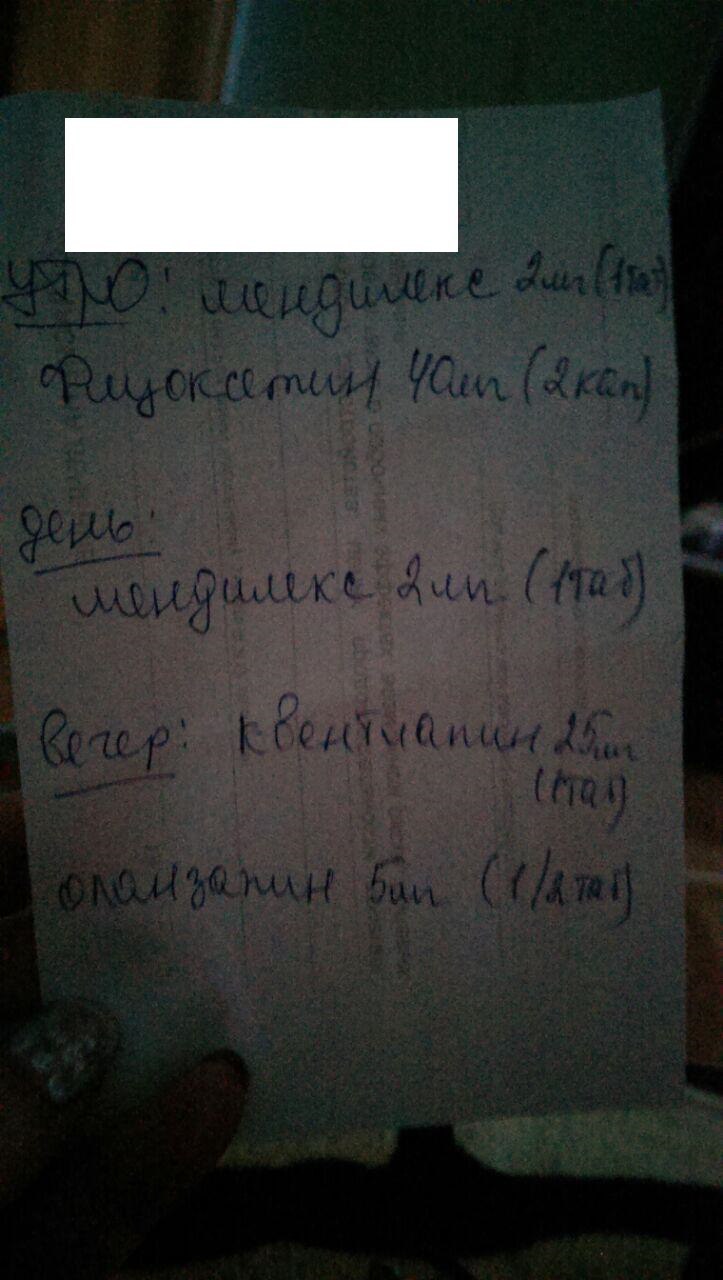 Утро: мендилекс 2мг (1таб)
Флуоксетин 40мг (2кап)
день:
мендилекс 2мг (1таб)
Вечер: квентиапин 25мг
(1таб)
оланзапин 5мг (1/2таб)